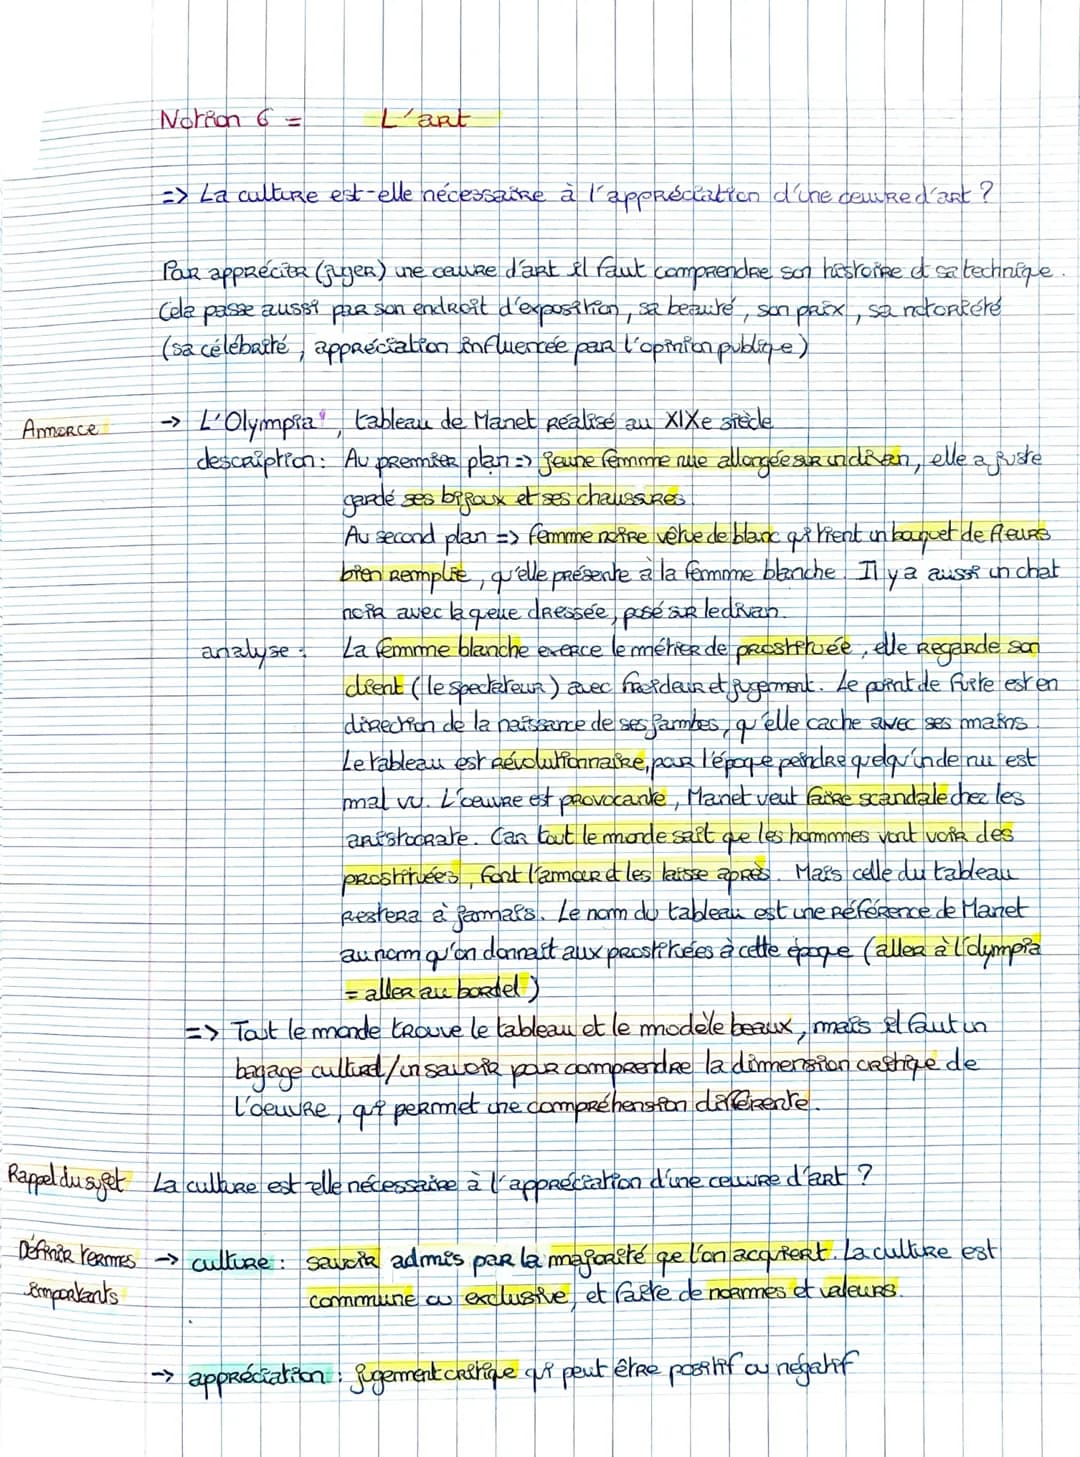 Notion 6 = L'art
=> La culture est-elle nécessaire à l'appréciation d'une oeuvre d'art ?
Par apprécier (juger) une oeuvre d'art il faut comprendre son histoire et sa technique.
Cela passe aussi par son endroit d'exposition, sa beauté, son prix, sa notoriété
(sa célébrité, appréciation influencée par l'opinion publique)
Amorce -> L'Olympia, tableau de Manet réalisé au XIXe siècle
description : Au premier plan => jeune femme nue allongée sur un divan, elle a juste
gardé ses bijoux et ses chaussures.
Au second plan => femme noire vêtue de blanc qui tient un bouquet de fleurs
bien remplie, qu'elle présente à la femme blanche. Il y a aussi un chat
noir avec la queue dressée, posé sur le divan.
analyse : La femme blanche exerce le métier de prostituée, elle regarde son
client (le spectateur) avec froideur et jugement. Le point de fuite est en
direction de la naissance de ses jambes, qu'elle cache avec ses mains.
Le tableau est révolutionnaire, pour l'époque peindre quelqu'un de nu est
mal vu. L'oeuvre est provocante, Manet veut faire scandale chez les
aristocrate. Car tout le monde sait que les hommes vont voir des
prostituées, font l'amour et les laisse après. Mais celle du tableau
restera à jamais. Le nom du tableau est une référence de Manet
au nom qu'on donnait aux prostituées à cette époque (aller à l'olympia
= aller au bordel)
=> Tout le monde trouve le tableau et le modèle beaux, mais il faut un
bagage culturel/un savoir pour comprendre la dimension critique de
l'oeuvre, qui permet une compréhension différente.
Rappel du sujet La culture est-elle nécessaire à l'appréciation d'une oeuvre d'art ?
Définir termes -> culture : savoir admis par la majorité que l'on acquiert. La culture est
importants commune ou exclusive, et faite de normes et valeurs.
-> appréciation : jugement critique qui peut être positif ou négatif